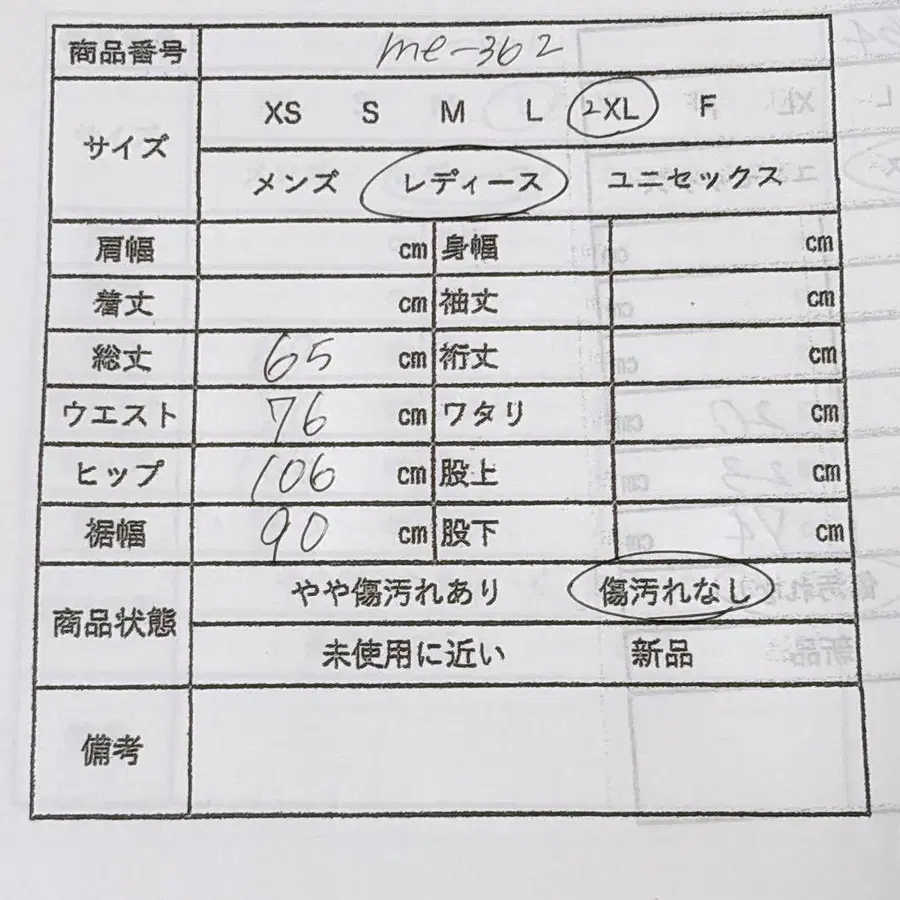 商品番号 me-362
サイズ XS S M L 2XL F
メンズ レディース ユニセックス
肩幅 cm 身幅 cm
着丈 cm 袖丈 cm
総丈 65 cm 裄丈 cm
ウエスト 76 cm ワタリ cm
ヒップ 106 cm 股上 cm
裾幅 90 cm 股下 cm
商品状態 やや傷汚れあり 傷汚れなし
未使用に近い 新品
備考